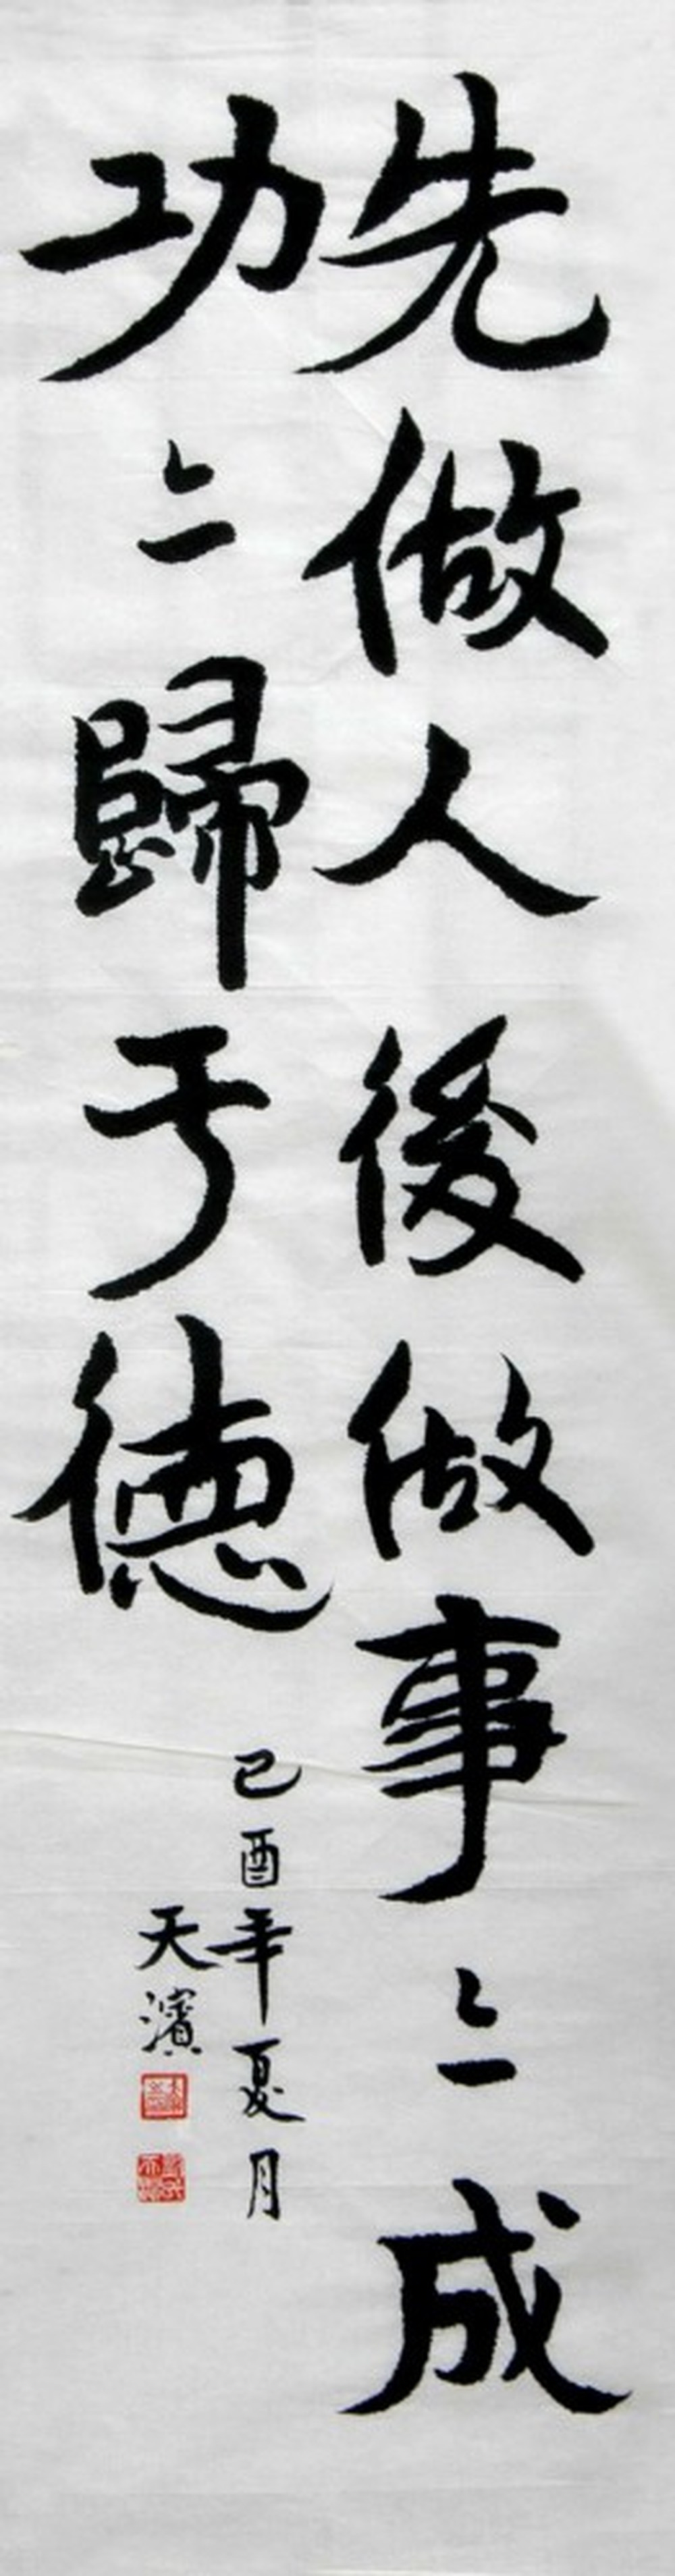 先做人後做事〻成
功〻歸于德
己酉年夏月
天濱